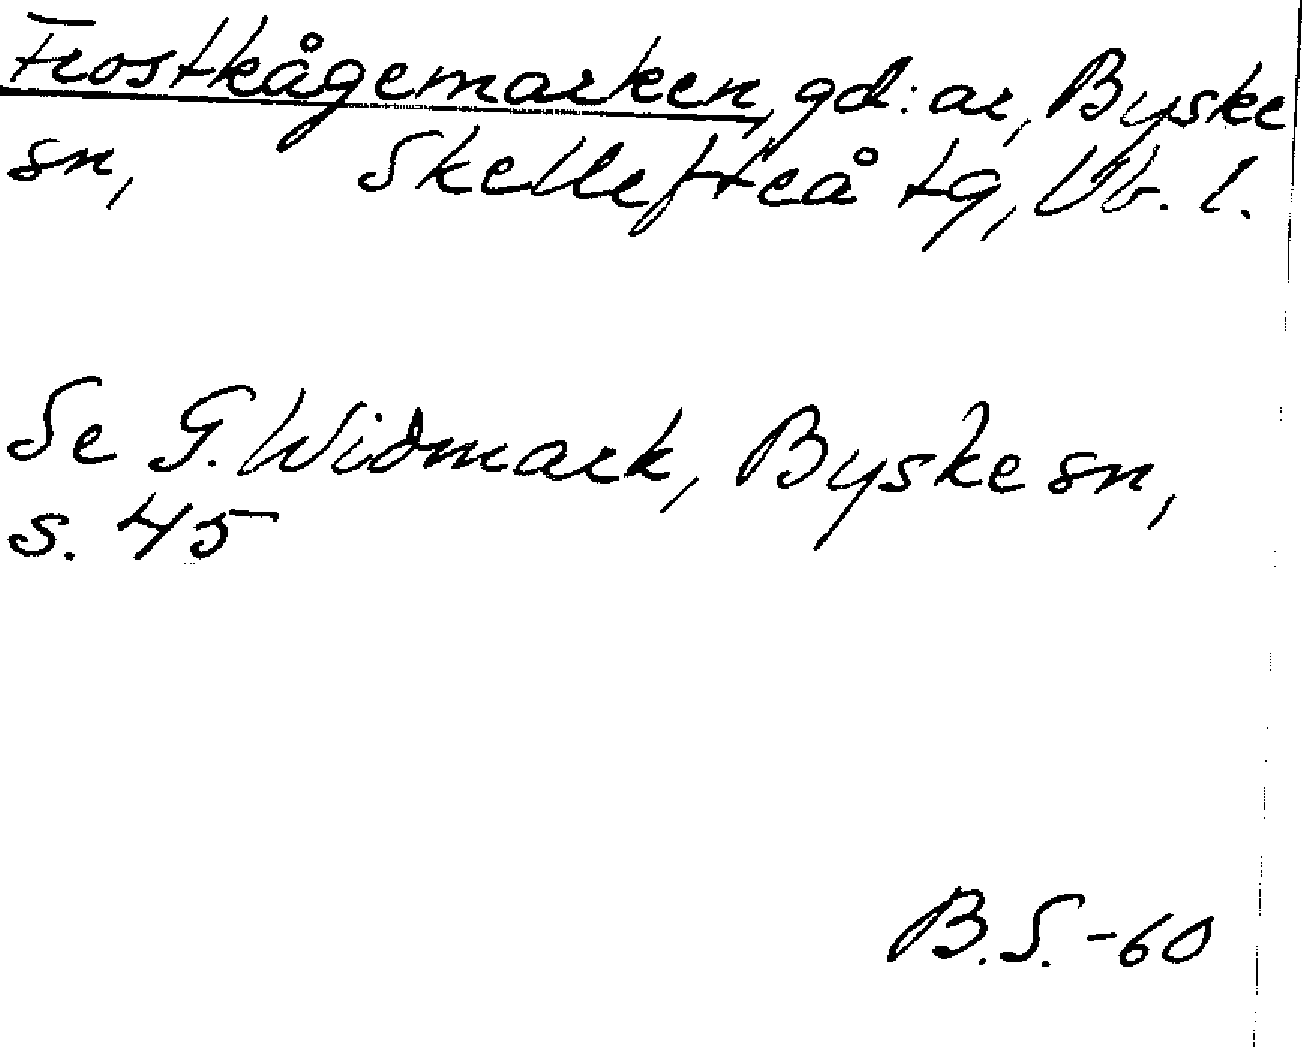 Frostkågemarken, gd:ar, Byske
sn, Skellefteå tg, Vb. l.
Se G. Widmark, Byske sn,
s. 45
B.S.-60